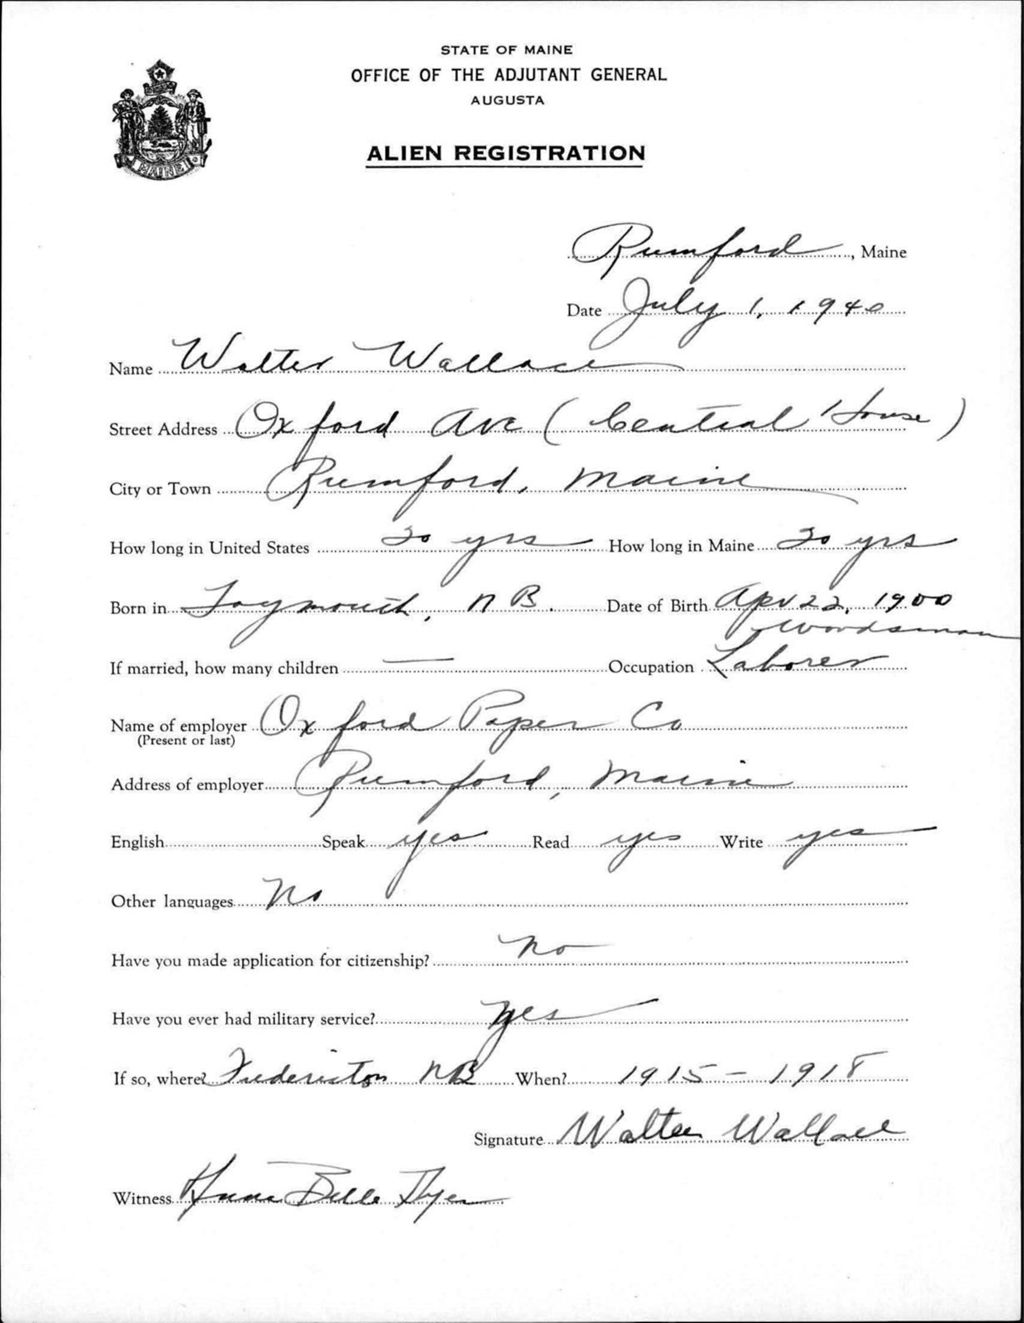 STATE OF MAINE
OFFICE OF THE ADJUTANT GENERAL
AUGUSTA
ALIEN REGISTRATION
MAINE
Rumford, Maine
Date July 1, 1940
Name Walter Wallace
Street Address Oxford Ave (Central House)
City or Town Rumford, Maine
How long in United States 20 yrs How long in Maine 20 yrs
Born in Taymouth, N B. Date of Birth Apr 22, 1900
Woodsman
If married, how many children — Occupation Laborer
Name of employer Oxford Paper Co
(Present or last)
Address of employer Rumford, Maine
English Speak yes Read yes Write yes
Other languages No
Have you made application for citizenship? No
Have you ever had military service? Yes
If so, where? Fredericton NB When? 1915 - 1918
Signature Walter Wallace
Witness Anna Belle Dyer